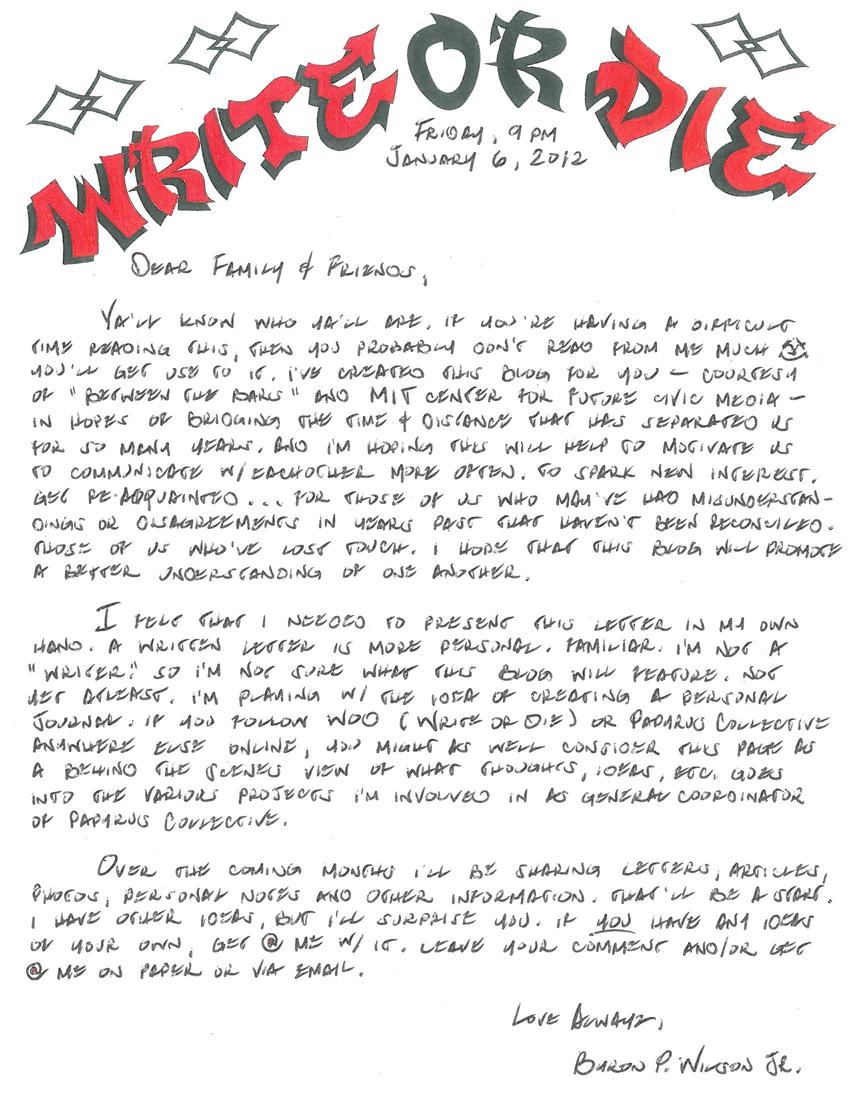 WRITE OR DIE
FRIDAY, 9 PM
JANUARY 6, 2012
DEAR FAMILY & FRIENDS,
YA'LL KNOW WHO YA'LL ARE. IF YOU'RE HAVING A DIFFICULT
TIME READING THIS, THEN YOU PROBABLY DON'T READ FROM ME MUCH
YOU'LL GET USE TO IT. I'VE CREATED THIS BLOG FOR YOU – COURTESY
OF "BETWEEN THE BARS" AND MIT CENTER FOR FUTURE CIVIC MEDIA –
IN HOPES OF BRIDGING THE TIME & DISTANCE THAT HAS SEPARATED US
FOR SO MANY YEARS. AND I'M HOPING THIS WILL HELP TO MOTIVATE US
TO COMMUNICATE W/EACHOTHER MORE OFTEN. TO SPARK NEW INTEREST.
GET RE-ACQUAINTED... FOR THOSE OF US WHO MAY'VE HAD MISUNDERSTAN-
DINGS OR DISAGREEMENTS IN YEARS PAST THAT HAVEN'T BEEN RECONCILED.
THOSE OF US WHO'VE LOST TOUCH. I HOPE THAT THIS BLOG WILL PROMOTE
A BETTER UNDERSTANDING OF ONE ANOTHER.
I FELT THAT I NEEDED TO PRESENT THIS LETTER IN MY OWN
HAND. A WRITTEN LETTER IS MORE PERSONAL. FAMILIAR. I'M NOT A
"WRITER." SO I'M NOT SURE WHAT THIS BLOG WILL FEATURE. NOT
YET ATLEAST. I'M PLAYING W/ THE IDEA OF CREATING A PERSONAL
JOURNAL. IF YOU FOLLOW WOD (WRITE OR DIE) OR PAPYRUS COLLECTIVE
ANYWHERE ELSE ONLINE, YOU MIGHT AS WELL CONSIDER THIS PAGE AS
A BEHIND THE SCENES VIEW OF WHAT THOUGHTS, IDEAS, ETC. GOES
INTO THE VARIOUS PROJECTS I'M INVOLVED IN AS GENERAL COORDINATOR
OF PAPYRUS COLLECTIVE.
OVER THE COMING MONTHS I'LL BE SHARING LETTERS, ARTICLES,
PHOTOS, PERSONAL NOTES AND OTHER INFORMATION. THAT'LL BE A START.
I HAVE OTHER IDEAS, BUT I'LL SURPRISE YOU. IF YOU HAVE ANY IDEAS
OF YOUR OWN, GET @ ME W/ IT. LEAVE YOUR COMMENT AND/OR GET
@ ME ON PAPER OR VIA EMAIL.
LOVE ALWAYZ,
BYRON P. WILSON JR.